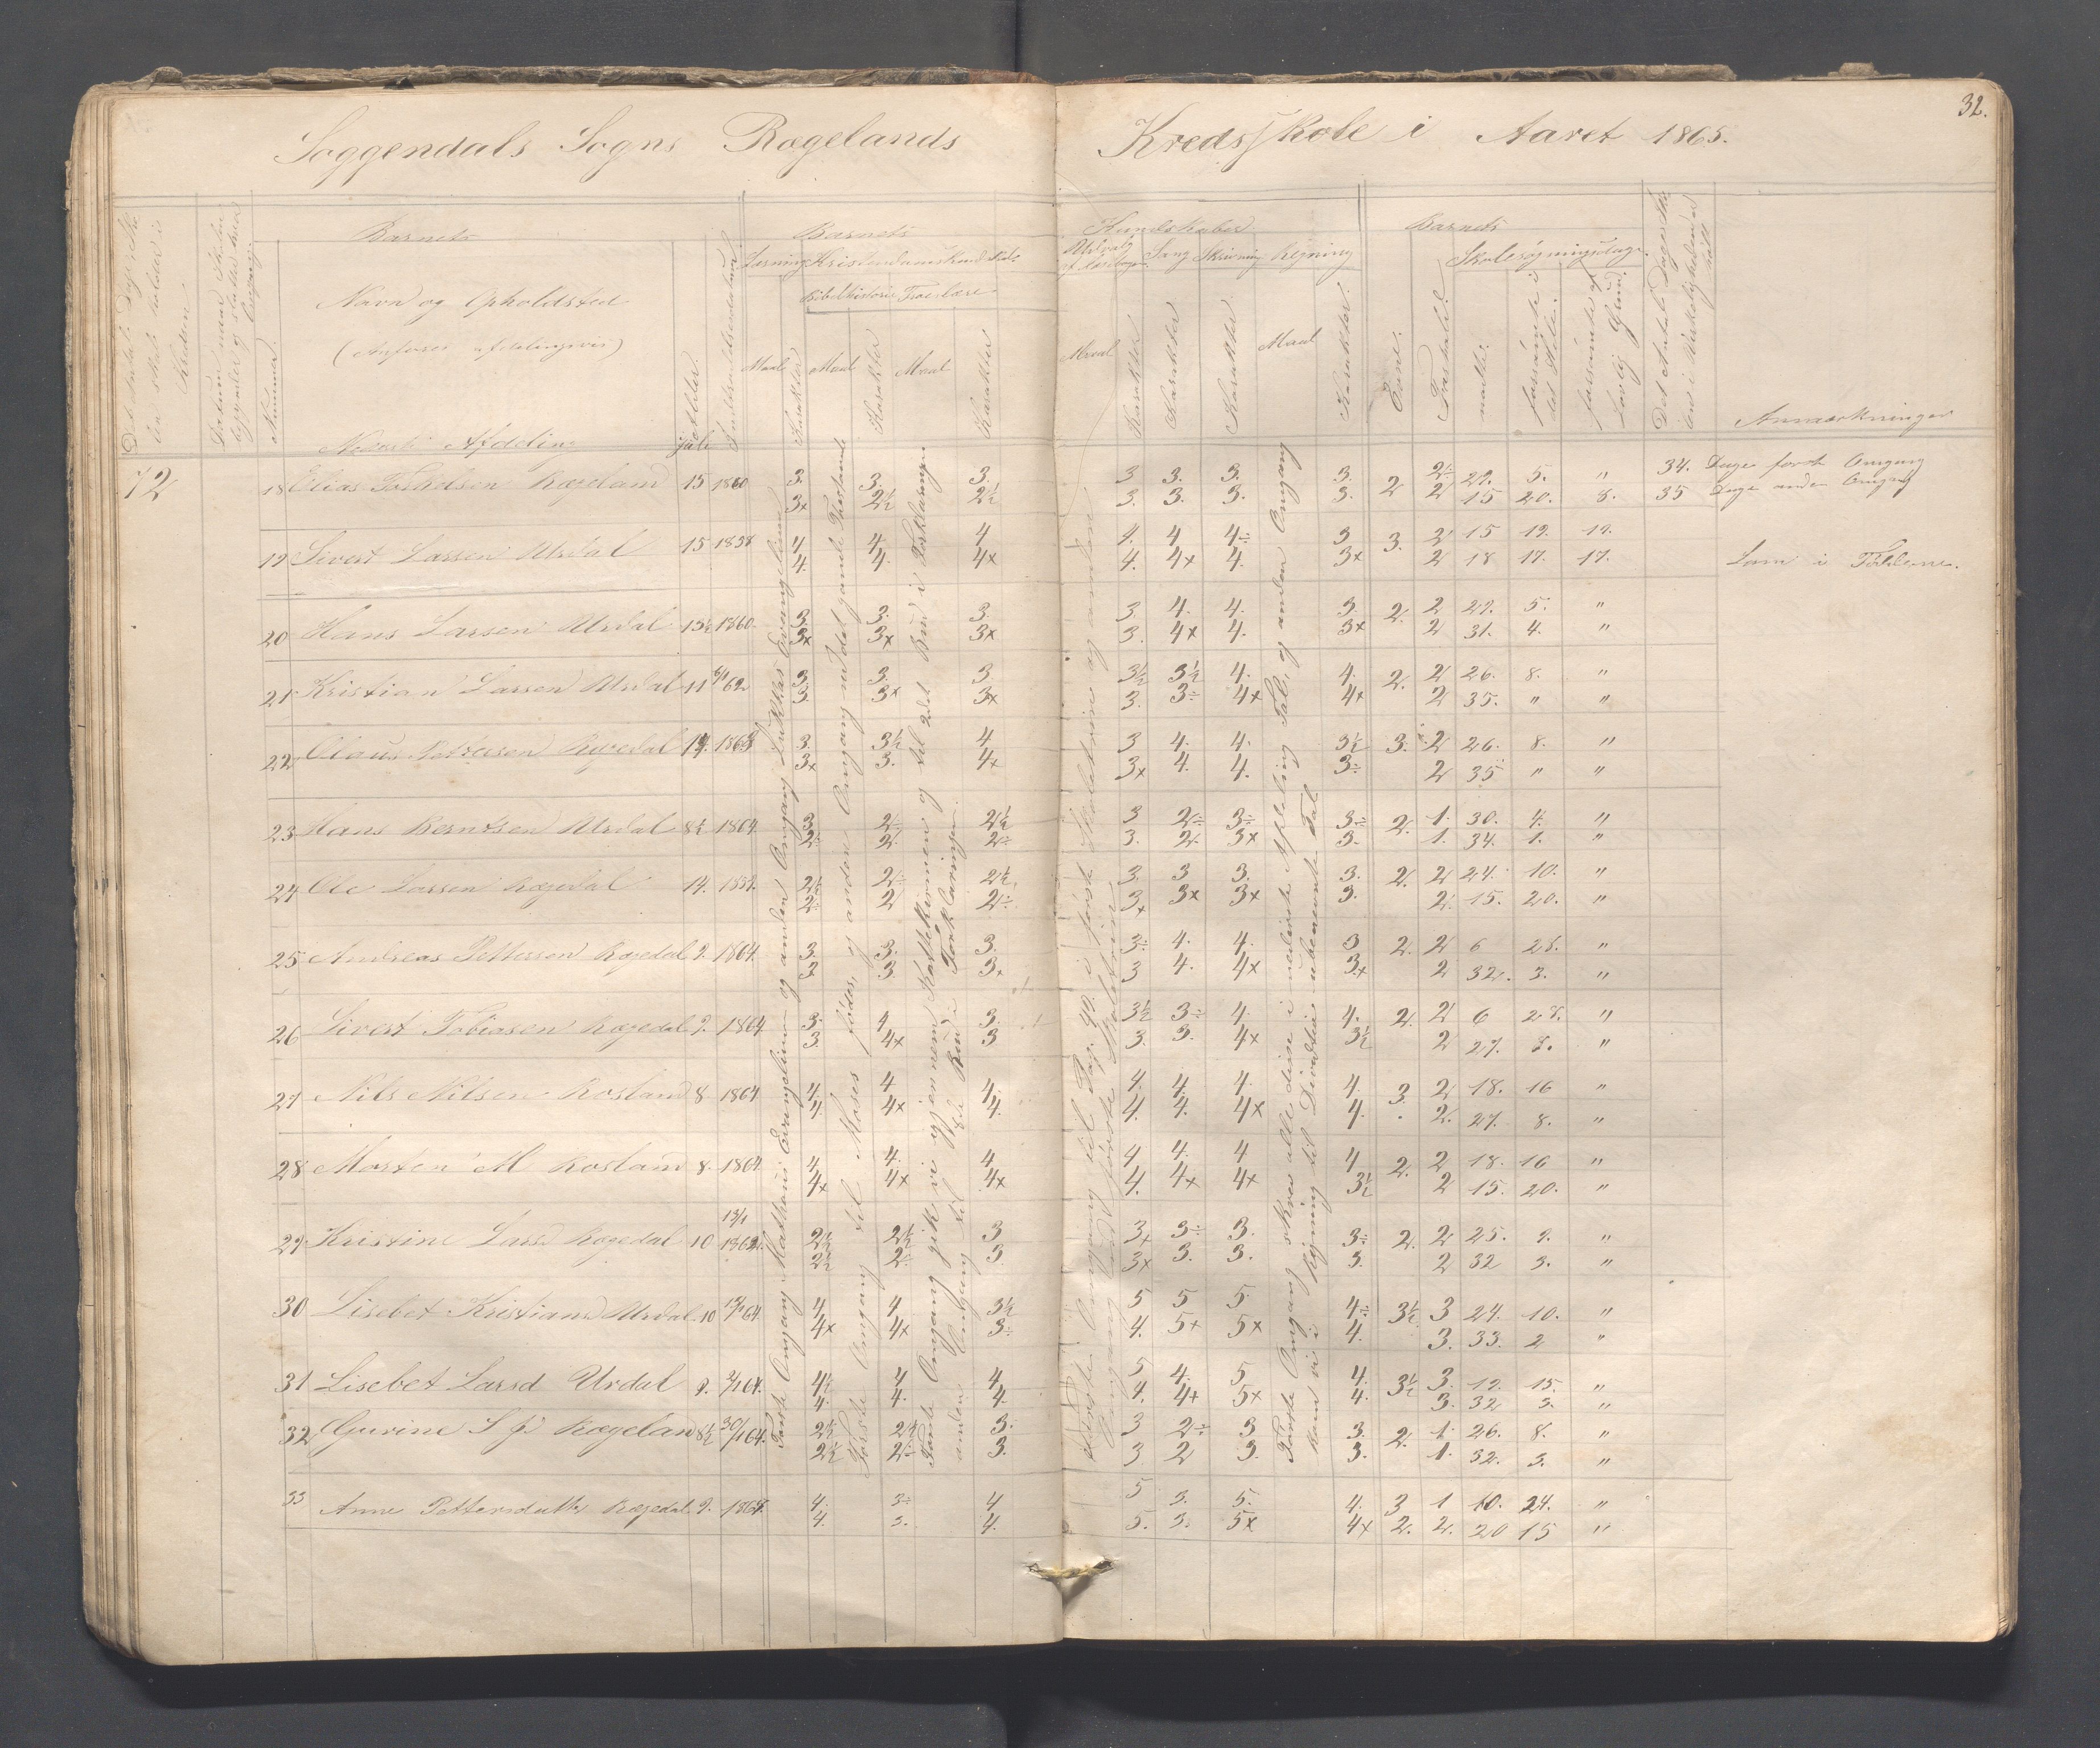 32.
Soggendals Sogns Rægelands Kredsskole i Aaret 1865.
Barnets
Navn og Opholdsted
(Anføres afdelingsvis)
Nederste Afdeling
Nummer.
Alder.
Barnets Kundskaber
Læsning Kristendomskundskab
Bibelhistorie Troeslære
Maal Karakter Maal Karakter Maal Karakter
Udvalg af Læsebogen Sang Skrivning Regning
Maal Karakter Karakter Karakter Maal Karakter
Barnets
Evne. Skolesøgningsdage.
mødte. forsømte i det Hele. forsømte af lovlig Grund.
Anmærkninger
72
18 Elias Rægeland 15 1860 3. 3. 3. 3 3. 3. 3. 2 2÷ 29. 5. " 34. Dage første Omgang
3x 2½ 2½ 3. 3. 3. 3. 2 15 20. 8. 35 Dage anden Omgang
19 Sivert Larsen Urdal 15 1858 4 4. 4 4. 4 4÷ 3 3. 2 15 19. 19.
4. 4. 4x 4. 4x 4. 3x 2 18 17. 17. Lam i
20 Hans Larsen Urdal 13½ 1860. 3. 3. 3. 3. 4. 4. 3. 2. 2 29. 5. "
3x 3x 3x 3. 4x 4. 3x 2 31. 4. "
21 Kristian Larsen Urdal 11 6/1 62 3. 3. 3. 3½ 3½ 4. 4. 2. 2 26. 8. "
3. 3x 3x 3. 3÷ 4x 4x 2 35. " "
22 Olaus Pettersen Rægedal 1863 3. 3½ 4 3 4. 4. 3½ 3. 2 26. 8. "
3x 3. 4x 3x 4. 4. 3÷ 2 35 " "
23 Hans Berntsen Urdal 8½ 1864. 3. 2÷ 2½ 3 2÷ 3÷ 3÷ 2. 1. 30. 4. "
2÷ 2. 2÷ 3. 2. 3x 3. 1. 34. 1. "
24 Ole Larsen Rægedal 14. 1859. 2½ 2÷ 2½ 3. 3 3. 3. 2. 2 24. 10. "
2÷ 2 2÷ 3x 3x 3x 3. 2. 15. 20. "
25 Andreas Pettersen Rægedal 9. 1864. 3. 3. 3. 3÷ 4. 4. 3 2. 2 6 28. "
3 3. 3x 3 4. 4x 3x 2 32. 3. "
26 Sivert Tobiasen Rægedal 9. 1864 3. 4 3. 3½ 3÷ 4. 4. 2. 2 6 28. "
3. 4x 3 3. 3. 4x 3½ 2 27. 8. "
27 Nils Nilsen Rosland 8. 1864 4. 4 4. 4. 4. 4. 4. 3. 2 18. 16 "
4. 4x 4. 4. 4. 4x 4. 2. 27. 8. "
28 Morten M Rosland 8. 1864 4 4. 4 4 4. 4 4 2. 2 18. 16 "
4x 4x 4x 4. 4x 4x 3½ 2 15. 20. "
29 Kristine Larsd Rægedal 10 13/1 1862. 2½ 2½ 3 3x 3÷ 3. 3÷ 2. 2 25. 9. "
2½ 2÷ 3 3x 3. 3. 3. 2 32 3. "
30 Lisebet Kristiansd Urdal 10 13/1 64. 4 4 3½ 5 5 5. 4÷ 3½ 3 24. 10. "
4x 4x 3÷ 4. 5x 5x 4. 3. 33. 2 "
31 Lisebet Larsd Urdal 9. 3/1 64. 4½ 4 4 5 4. 5 4. 3½ 3. 19. 15. "
4. 4. 4. 4. 4x 5x 4. 3. 32 3. "
32 Gurine Rægeland 8½ 30/1 64. 2½ 2½ 3. 3 2÷ 3 3. 2. 1. 26. 8. "
2½ 2÷ 3. 3. 2 3. 3. 1. 32. 3. "
33 Anne Pettersdatter Rægedal 9. 1864. 4. 3÷ 4 5 3. 5. 4. 3 1 10. 24. "
4. 3. 4. 5. 3. 5x 4x 2. 2. 20 15 "
Første Omgang Mathæus Evangelium og anden Omgang Lukkas Evangelium
Første Omgang til Moses fødes, og anden Omgang
Første Omgang gik vi igjennem og til 2det Bud i Forklaringen
anden Omgang til 8de Bud i Forklaringen.
Første Omgang til Pag. 90. i først Skoletrin og anden
Omgang første Skoletrin
Første Omgang skrev alle disse i nederste Afdeling Tal, og anden Omgang
kom vi i Regning til ubenevnte Tal